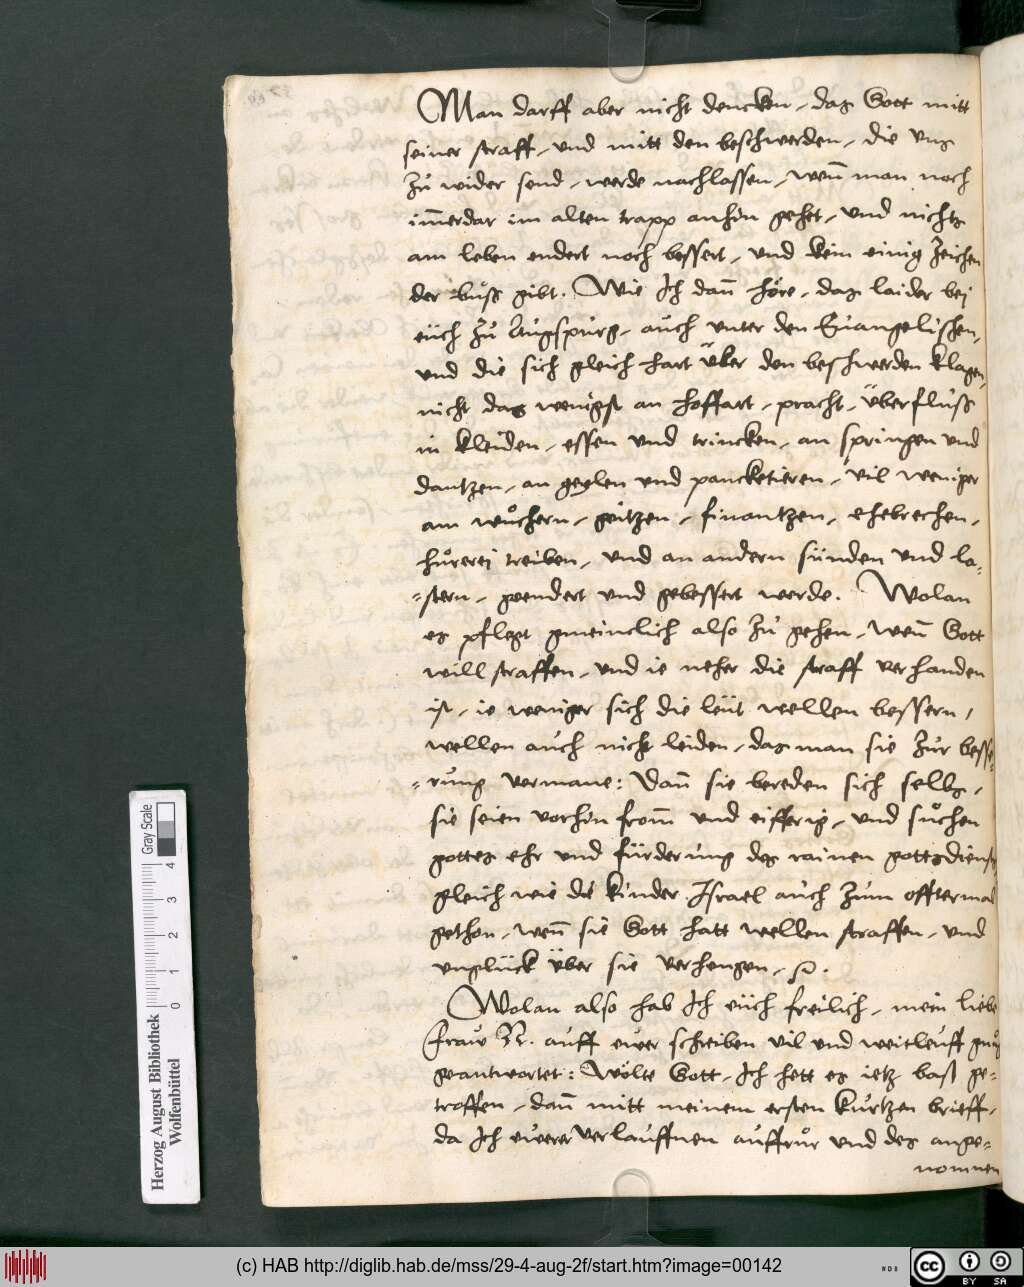 Man darff aber nicht dencken, das Gott mitt
seiner straff, und mitt den beschwerden, die uns
zu wider send, werde nachlassen, wen̄ man noch
im̄erdar im alten trapp anhin gehet, und nichts
am leben endert noch bessert, und kein einig zeichen
der buͤß gibt. Wie Ich dan̄ höre, das laider bej
euch zu Augspurg, auch unter den Euangelischen,
und die sich gleich hart über den beschwerden klagen,
nicht das wenigst an hoffart, pracht, überfluß
in kleiden, essen und trincken, an springen und
dantzen, an geylen und pancketieren, vil weniger
am wuͦchern, geitzen, finantzen, ehebrechen,
huͦrerej treiben, und an andern sünden und la-
-stern, geendert und gebessert werde. Wolan
es pflegt gmeincklich also zu gehen, wen̄ Gott
will straffen, und ie neher die straff verhanden
ist, ie weniger sich die leüt wellen bessern,
wellen auch nicht leiden, das man sie zur besse-
-rung vermane: Dan̄ sie bereden sich selbs,
sie seien vorhin from̄ und eifferig, und suͦchen
gottes ehr und fürderung des rainen gottsdiensts,
gleich wie die kinder Israel auch zum offtermal
gethon, wen̄ sie Gott hatt wellen straffen, und
unglück über sie verhengen,
Wolan also hab Ich euch freilich, mein liebe
Fraw N. auff ewer schreiben vil und weitleuff gnuͦg
geantwortet: Wölte Gott, Ich hett es ietz baß ge-
troffen, dan̄ mitt meinem ersten kurtzen brieff,
da Ich ewerer verlauffnen auffruͦr und des ange-
nomnen
Herzog August Bibliothek
Wolfenbüttel
0 1 2 3 4
Gray Scale
(c) HAB http://diglib.hab.de/mss/29-4-aug-2f/start.htm?image=00142
WDB
cc BY SA